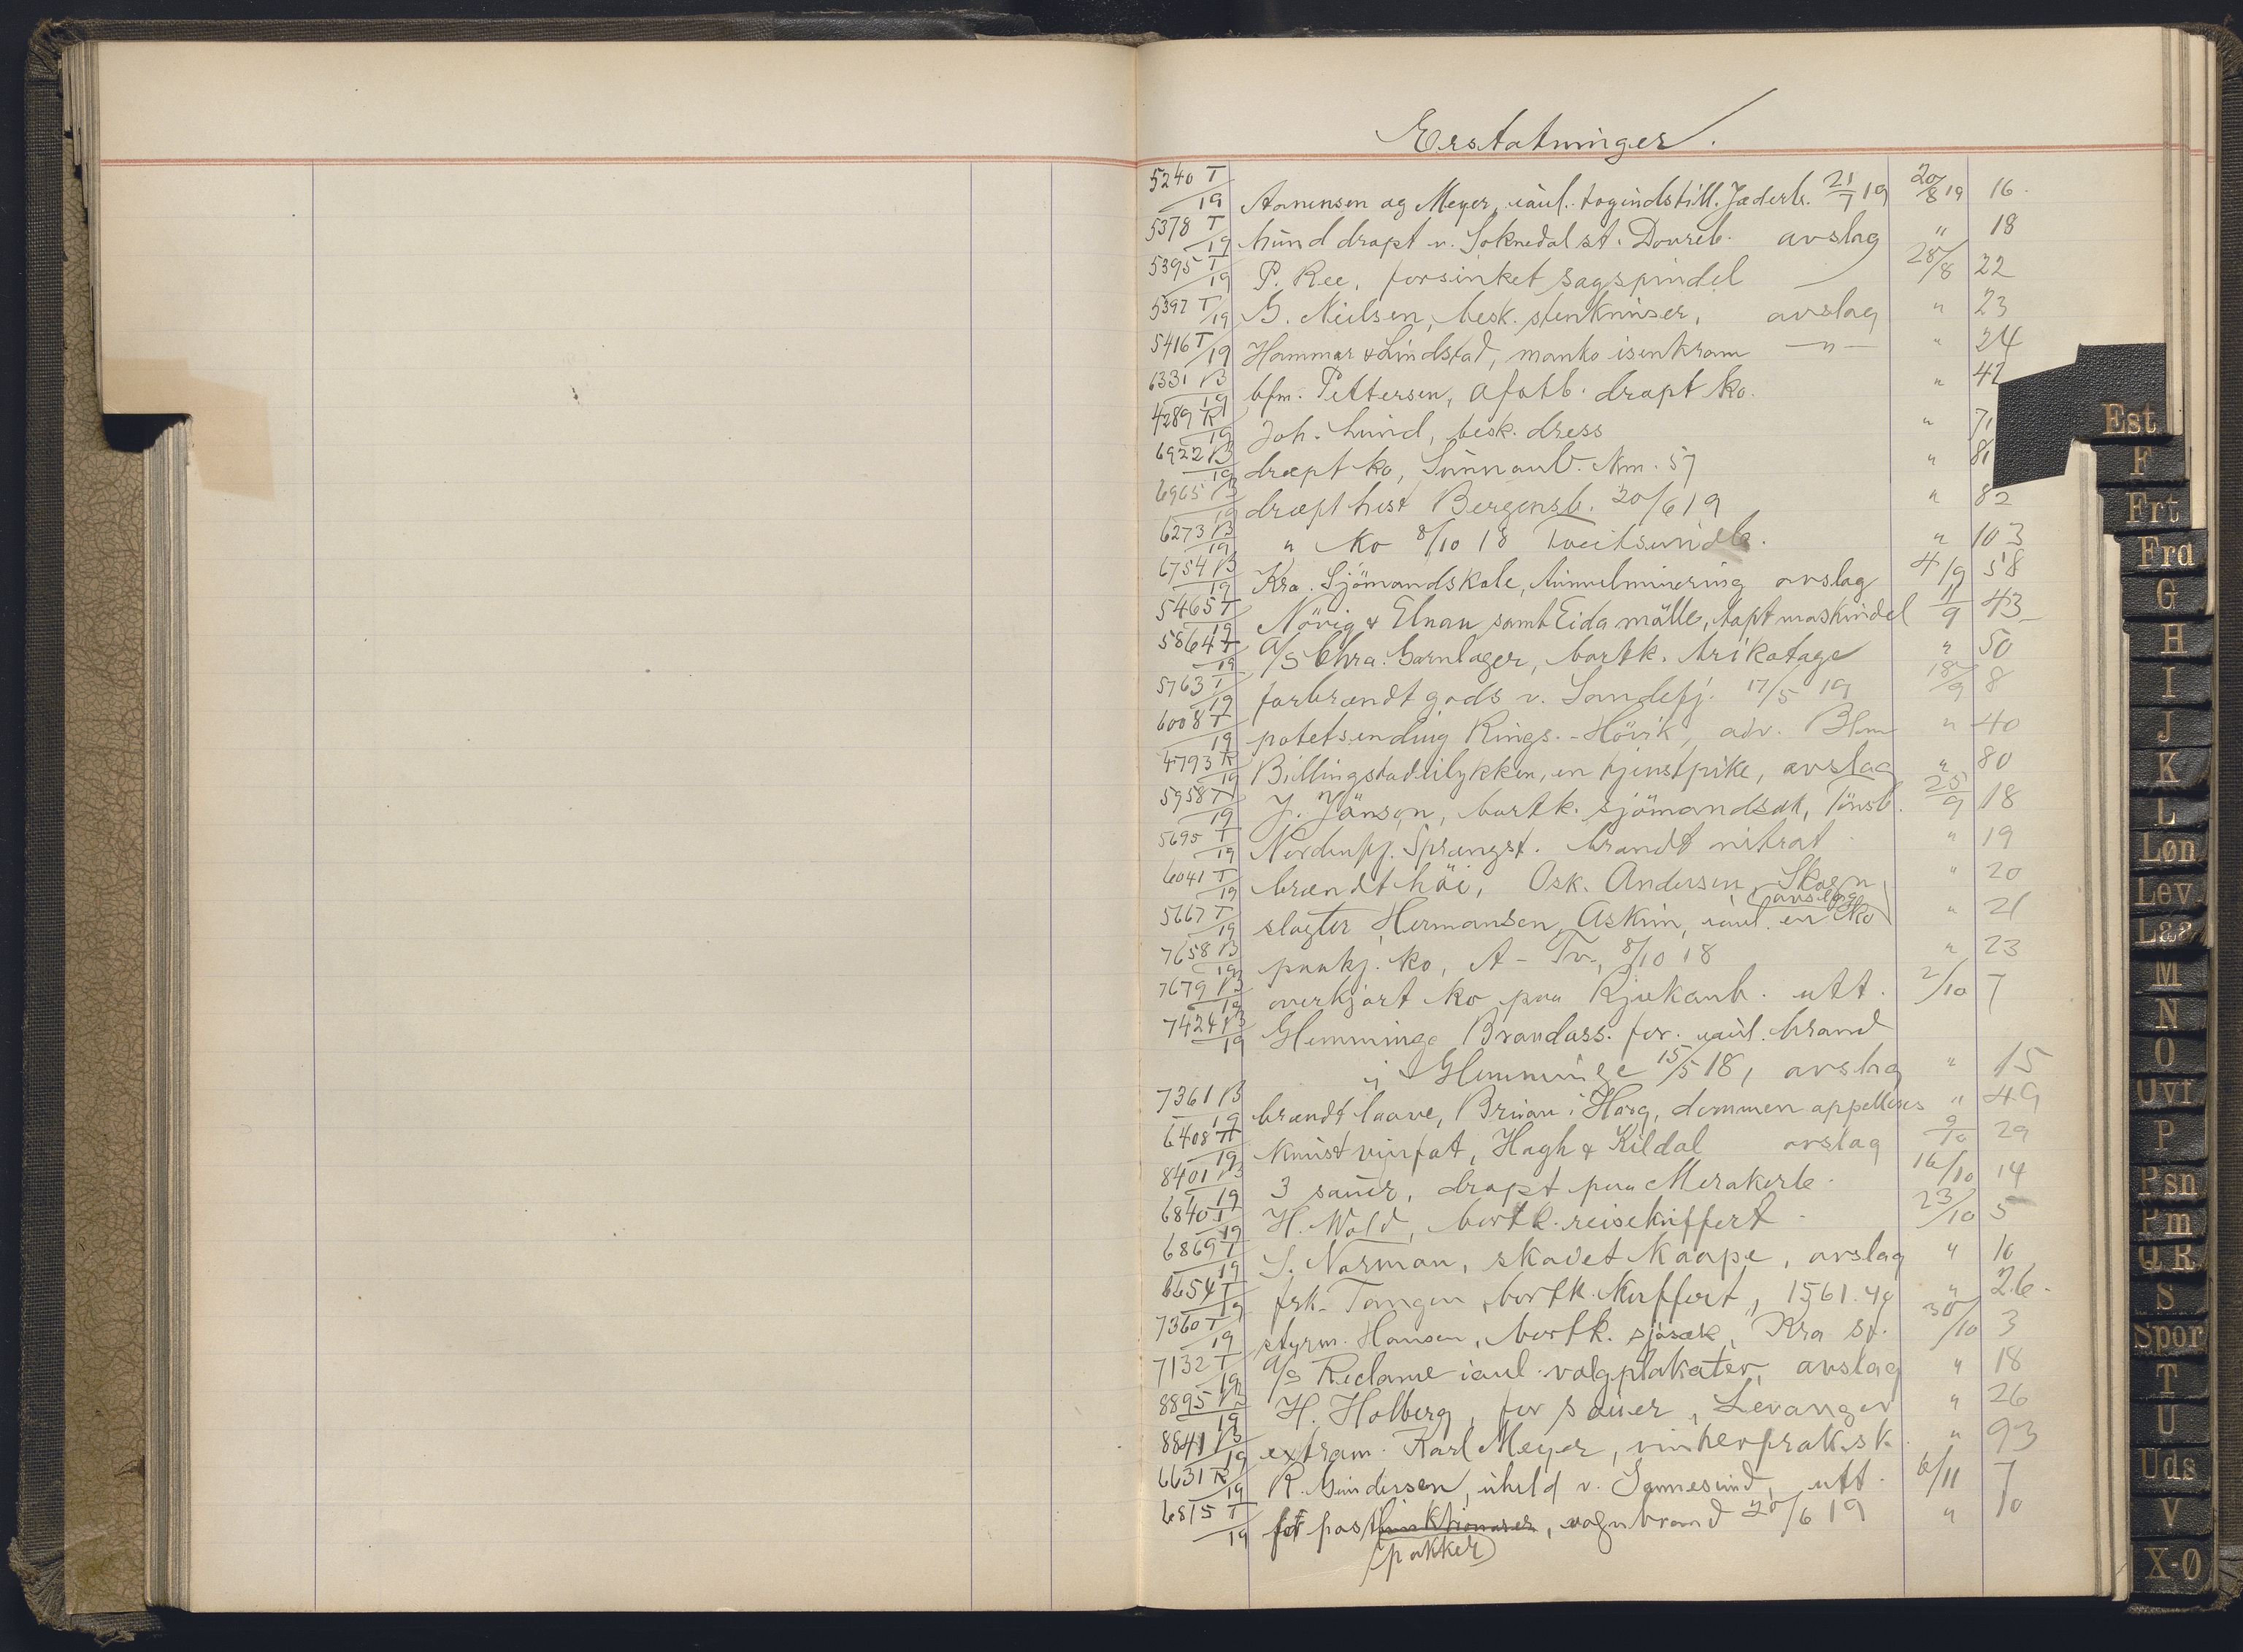 Erstatninger.
5240 T/19 Aanensen og Meyer, iaul. togindstill. Jæderb. 21/7 19 20/8 19 16.
5378 T/19 hund drapt v. Soknedal st. Dovreb. avslag " 18
5395 T/19 P. Ree, forsinket sagspindel 28/8 22
5397 T/19 G. Nielsen, besk. stenknuser, avslag " 23
5416 T/19 Hammar & Lindstad, manko isenkram —"— " 24
6331 B/19 bfm. Pettersen, Ofotb. drapt ko. " 42
4289 R/19 Joh. Lund, besk. dress " 71
6922 B/19 dræpt ko, Sunnanb. Nm. 57 " 81
6965 B/19 dræpt hest Bergensb. 20/6 19 " 82
6273 B/19 " ko 8/10 18 Tveitsundb. " 103
6754 B/19 Kra. Sjömandskole, tunnelminering avslag 4/9 58
5465 T/19 Növig & Elnan samt Eida mölle, tapt maskindel 11/9 43
5864 T/19 A/S Chra. Garnlager, bortk. trikotage " 50
5763 T/19 forbrændt gods v. Sandefj. 17/5 19 18/9 8
6008 T/19 potetsending Rings.-Hövik, adv. Blom " 40
4793 R/19 Billingstadulykken, en tjenstpike, avslag " 80
5958 T/19 J. Jönson, bortk. sjömandsæk, Tönsb. 25/9 18
5695 T/19 Nordenfj. Sprængst. brændt nitrat " 19
6041 T/19 brændt höi, Osk. Andersen, Skogn " 20
avslag
5667 T/19 slagter Hermansen, Askim, iaul. en ko " 21
7658 B/19 paakj. ko, A-Tv., 8/10 18 " 23
7679 B/19 overkjört ko paa Rjukanb. utt. 2/10 7
7424 B/19 Glemminge Brandass. for. iaul. brand
i Glemminge 15/5 18, avslag " 15
7361 B/19 brændt laave, Bruau i Harg, dommen appelleres " 49
6408 T/19 knust vinfat, Hagh & Kildal avslag 9/10 29
8401 B/19 3 sauer, drapt paa Merakerb. 16/10 14
6840 T/19 H. Wold, bortk. reisekuffert 23/10 5
6869 T/19 S. Narman, skadet kaape, avslag " 16
6654 T/19 frk. Tangen, bortk. kuffert, 1561.40 " 26.
7360 T/19 styrm. Hansen, bortk. sjösæk, Kra st. 30/10 3
7132 T/19 A/S Reclame iaul. valgplakater, avslag " 18
8895 B/19 H. Holberg, for sauer, Levanger " 26
8841 B/19 extram. Karl Meyer, vinterfrakk sk. " 93
6631 R/19 R. Gundersen, uheld v. Sannesund, utt. 6/11 7
6815 T/19 for postfunktionærer, vognbrand 20/6 19 " 10
(pakker)
Est
F
Frt
Frd
G
H
I
J
K
L
Løn
Lev
Laa
M
N
O
Ovf
P
Psn
Pm
Q R
S
Spor
T
U
Uds
V
X-Ø